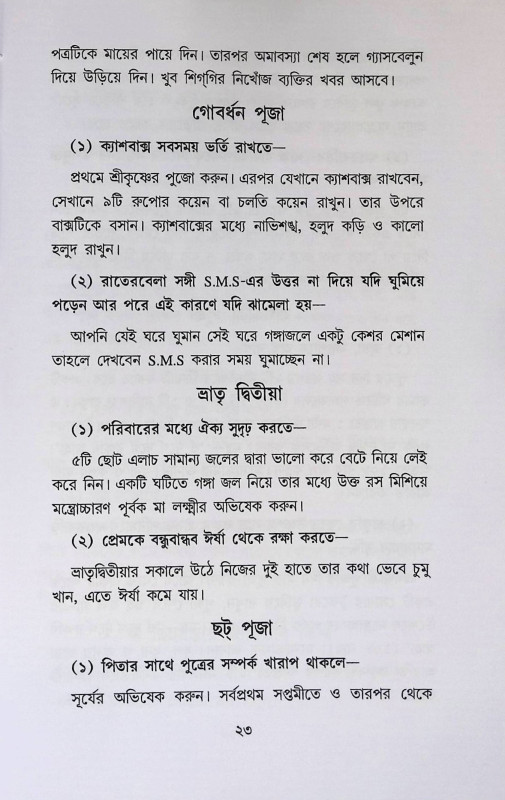 পত্রটিকে মায়ের পায়ে দিন। তারপর অমাবস্যা শেষ হলে গ্যাসবেলুন
দিয়ে উড়িয়ে দিন। খুব শিগ্‌গির নিখোঁজ ব্যক্তির খবর আসবে।
গোবর্ধন পূজা
(১) ক্যাশবাক্স সবসময় ভর্তি রাখতে—
প্রথমে শ্রীকৃষ্ণের পুজো করুন। এরপর যেখানে ক্যাশবাক্স রাখবেন,
সেখানে ৯টি রুপোর কয়েন বা চলতি কয়েন রাখুন। তার উপরে
বাক্সটিকে বসান। ক্যাশবাক্সের মধ্যে নাভিশঙ্খ, হলুদ কড়ি ও কালো
হলুদ রাখুন।
(২) রাতেরবেলা সঙ্গী S.M.S-এর উত্তর না দিয়ে যদি ঘুমিয়ে
পড়েন আর পরে এই কারণে যদি ঝামেলা হয়—
আপনি যেই ঘরে ঘুমান সেই ঘরে গঙ্গাজলে একটু কেশর মেশান
তাহলে দেখবেন S.M.S করার সময় ঘুমাচ্ছেন না।
ভ্রাতৃ দ্বিতীয়া
(১) পরিবারের মধ্যে ঐক্য সুদৃঢ় করতে—
৫টি ছোট এলাচ সামান্য জলের দ্বারা ভালো করে বেটে নিয়ে লেই
করে নিন। একটি ঘটিতে গঙ্গা জল নিয়ে তার মধ্যে উক্ত রস মিশিয়ে
মন্ত্রোচ্চারণ পূর্বক মা লক্ষ্মীর অভিষেক করুন।
(২) প্রেমকে বন্ধুবান্ধব ঈর্ষা থেকে রক্ষা করতে—
ভ্রাতৃদ্বিতীয়ার সকালে উঠে নিজের দুই হাতে তার কথা ভেবে চুমু
খান, এতে ঈর্ষা কমে যায়।
ছট্ পূজা
(১) পিতার সাথে পুত্রের সম্পর্ক খারাপ থাকলে—
সূর্যের অভিষেক করুন। সর্বপ্রথম সপ্তমীতে ও তারপর থেকে
২৩